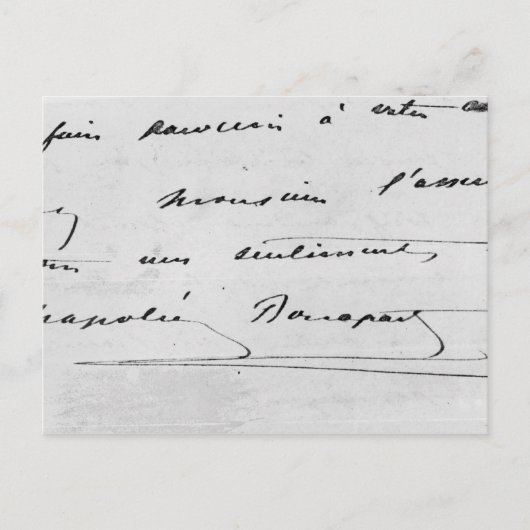 fair parvenir à votre
Monsieur l'assu
mes sentiments
Napoléon Bonapart